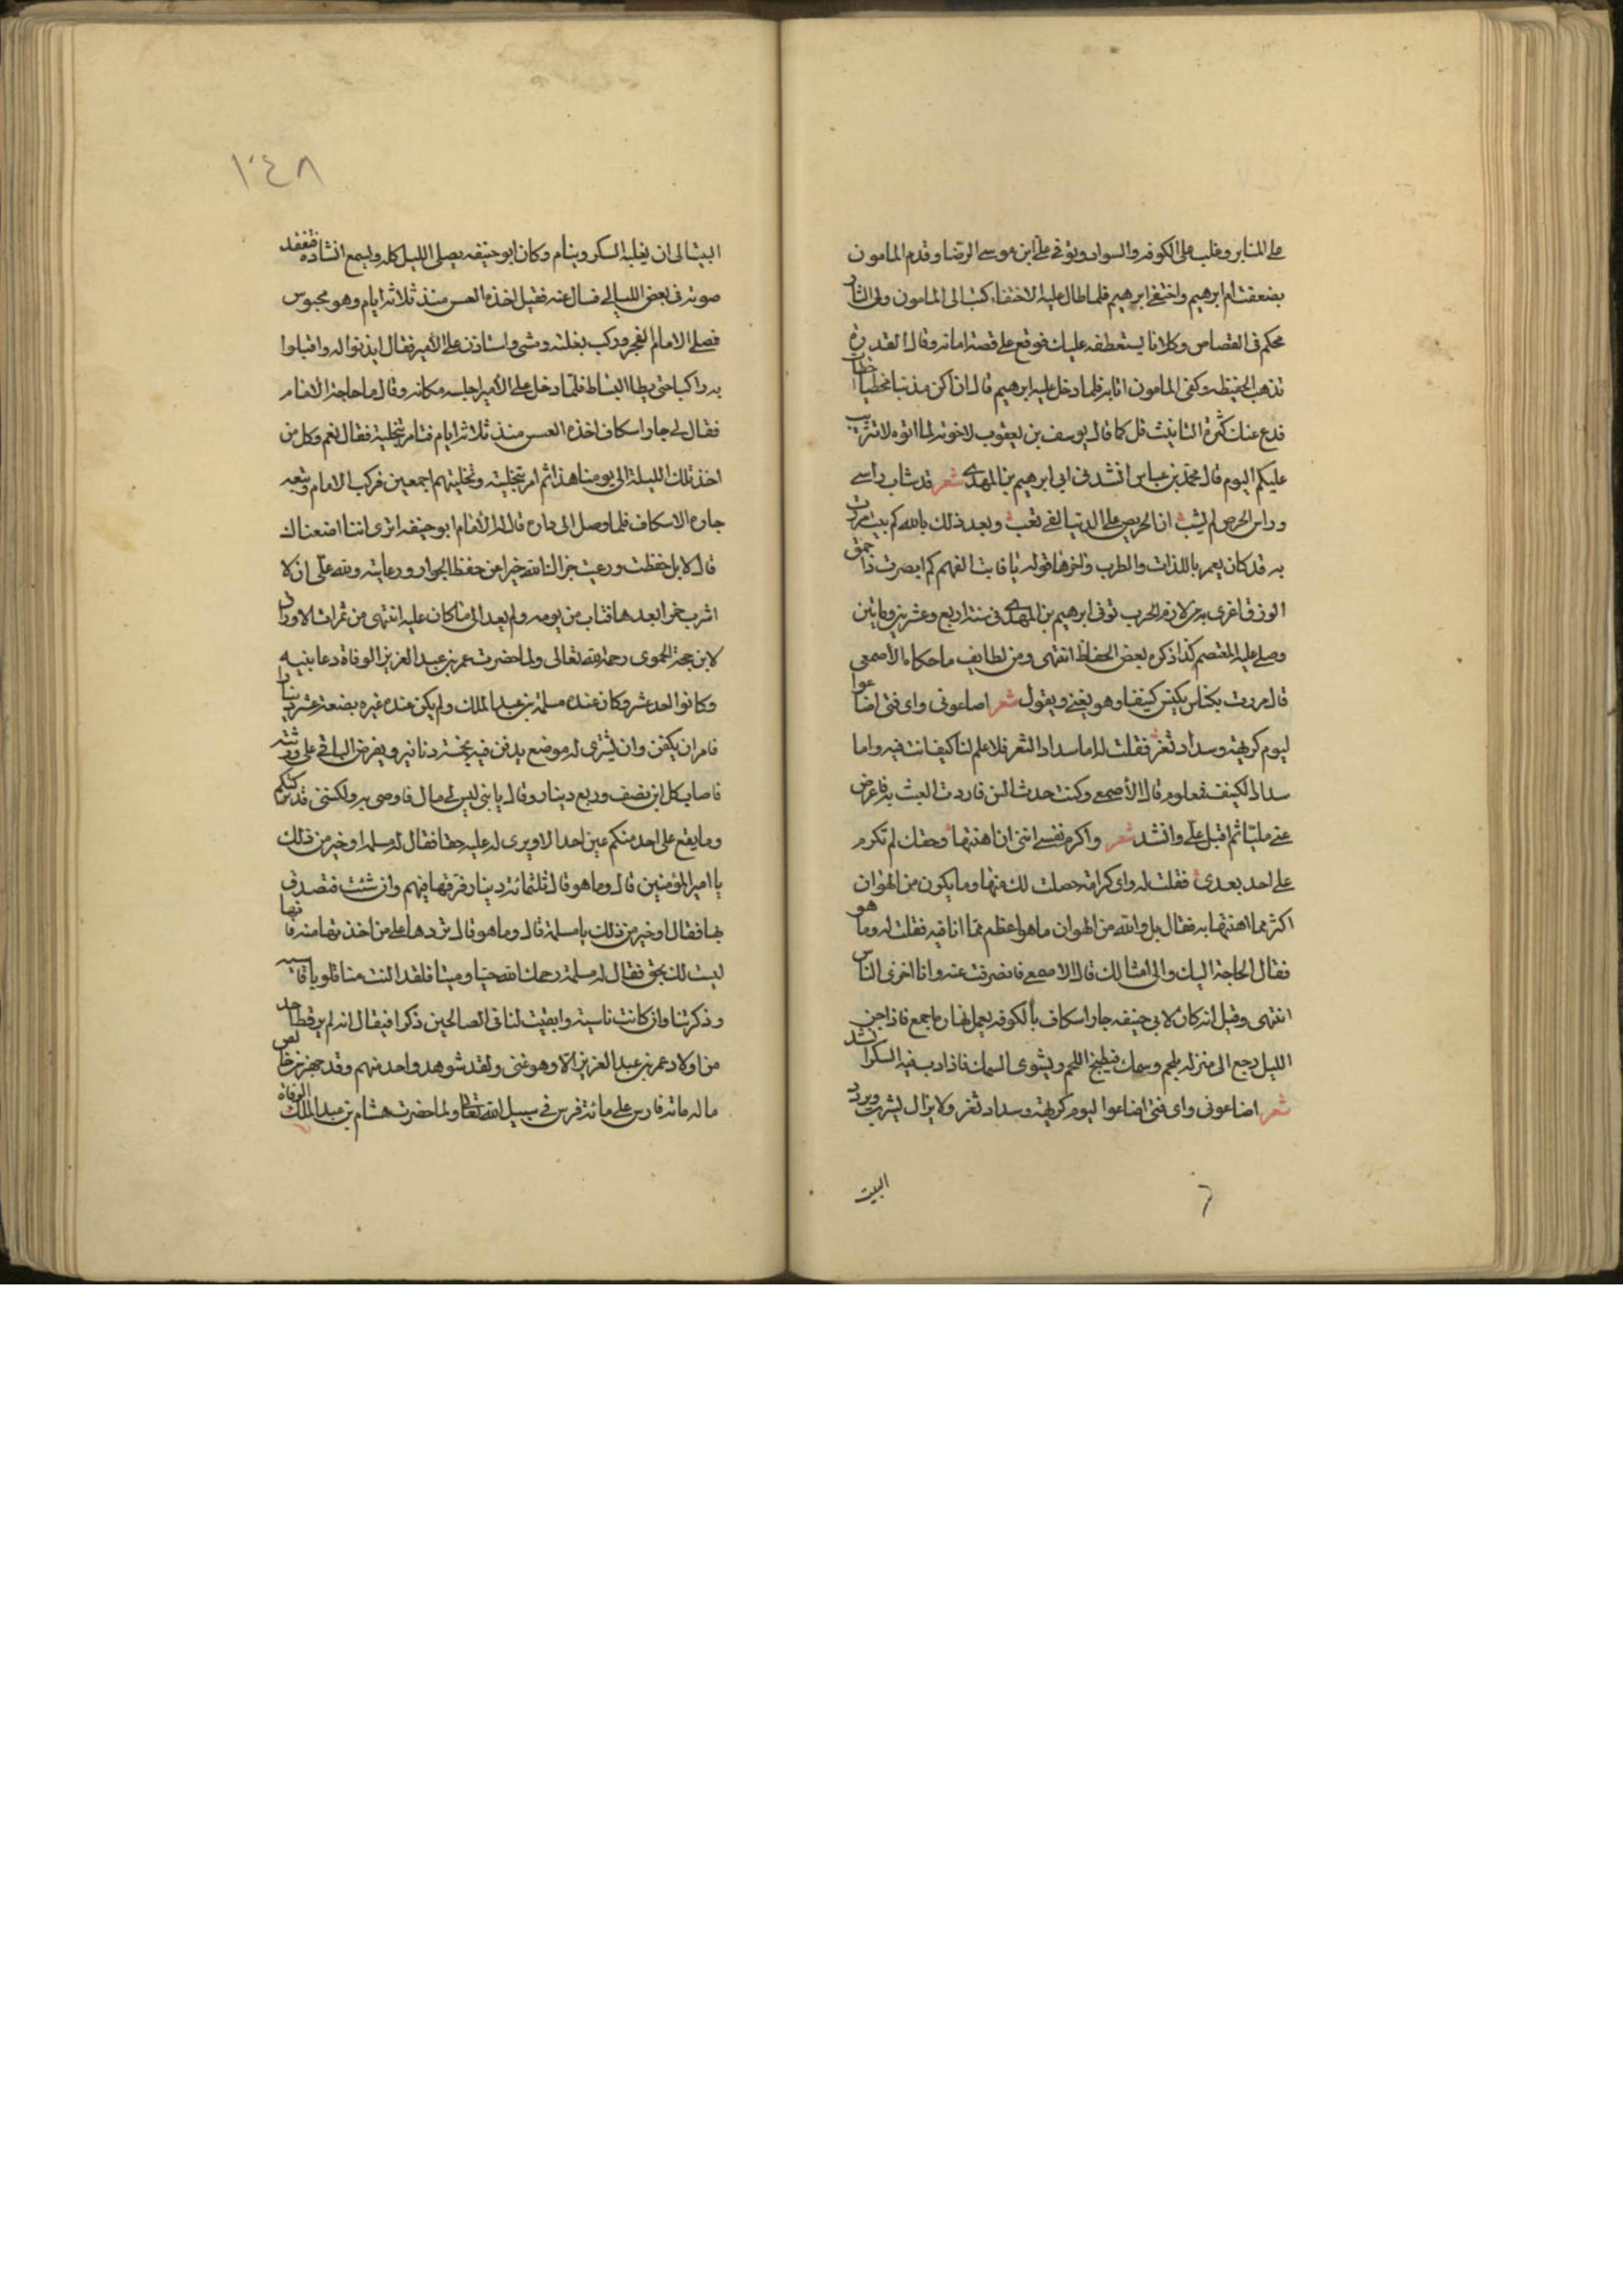 على المنابر وغلب على الكوفه والسواد وتوفى على ابن موسى الرضا وقدم المامون
بضعفت ام ابرهيم واختفى ابرهيم فلما طال عليه الاختفاء كتب الى المامون ولى الثار
محكم فى القصاص وكلانا يستعطفه عليك فوقع على قصته امانه وقال القدرة
تذهب الحفيظه وكفى المامون انابه فلما دخل عليه ابرهيم قال ان اكن مذنبا فخطيا اخطات
فدع عنك كثرة التانيث قل كما قال يوسف بن يعقوب لاخوته لما اتوه لا تثريب
عليكم اليوم قال محمد بن عباس انشدنى ابى ابرهيم بن المهدى شعر قد شاب راسى
وراس الحرص لم يشب ان الحريص على الدنيا لفى تعب وبعد ذلك بالله كم بيت مررت
به قد كان يعمر باللذات والطرب واخرها قوله يا ثابت الفهم كم ابصرت ذا حمق
الرزق اغرى به من لازم الحرب توفى ابرهيم بن المهدى فى سنة اربع وعشرين وماتين
وصلى عليه المعتصم كذا ذكره بعض الحفاظ انتهى ومن لطايف ما حكاه الاصمعى
قال مررت بكناس يكنس كنيفا وهو يغنى ويقول شعر اضاعونى واى فتى اضاعوا
ليوم كريهة وسداد ثغر فقلت له اما سداد الثغر فلا علم لنا كيف انت فيه واما
سداد الكنيف فمعلوم قال الأصمعى وكنت حدث السن فاردت العبث به فاعرض
عنى مليّا ثم اقبل علّى وانشد شعر واكرم نفسى اننى ان اهنتها وحقك لم تكرم
على احد بعدى فقلت له واى كرامة حصلت لك منها وما يكون من الهوان
اكثر مما اهنتها به فقال بل والله من الهوان ما هو اعظم مما انا فيه فقلت له وما هو
فقال الحاجة اليك والى امثالك قال الاصمعى فانصرفت عنه وانا اخزى الناس
انتهى وقيل انه كان لابى حنيفه جار اسكاف بالكوفه يعمل نهاره اجمع فاذا جن
الليل رجع الى منزله بلحم وسمك فيطبخ اللحم ويشوى السمك فاذا دب فيه السكر انشد
شعر اضاعونى واى فتى اضاعوا ليوم كريهة وسداد ثغر ولا يزال يشرب ويردد
البيت
١٠٤٨
البيت الى ان يغلبه السكر وينام وكان ابو حنيفه يصلى الليل كله ويسمع انشاده ففقد
صوته فى بعض الليالى فسال عنه فقيل اخذه العسس منذ ثلاثه ايام وهو محبوس
فصلى الامام الفجر وركب بغلته ومشى واستاذن على الأمير فقال ايذنوا له واقبلوا
به راكبا حتى يطا البساط فلما دخل على الأمير اجلسه مكانه وقال ما حاجة الامام
فقال لى جار اسكاف اخذه العسس منذ ثلاثة ايام فتامر بتخليته فقال نعم وكل من
اخذ تلك الليلة الى يومنا هذا ثم امر بتخليته وتخليتهم اجمعين فركب الامام وتبعه
جاره الاسكاف فلما وصل الى داره قال له الامام ابو حنيفه اترى اننا اضعناك
قال لا بل حفظت ورعيت جزاك الله خيرا عن حفظ الجوار ورعايته ولله علّى ان لا
اشرب خمرا بعدها فتاب من يومه ولم يعد الى ما كان عليه انتهى من ثمرات الاوراق
لابن حجة الحموى رحمه الله تعالى ولما حضرت عمر بن عبد العزيز الوفاة دعا بنيه
وكانوا احد عشر وكان عنده مسلمة بن عبد الملك ولم يكن عنده غيره بضعة عشر دينارا
فامر ان يكفن وان يشترى له موضع يدفن فيه بخمسة دنانير ويفرض الباقى على ورثته
فاصاب كل ابن نصف وربع دينار وقال يا بنى ليس لى مال فاوصى به ولكننى قد تركتكم
وما يقع على احد منكم عين احد الا ويرى له عليه حقا فقال له مسلمة او خير من ذلك
يا امير المؤمنين قال وما هو قال ثلثمائة دينار فرقها فيهم وان شئت فتصدق
بها فقال او خير من ذلك يا مسلمة قال وما هو قال تردها على من اخذتها منه فانها
ليست لك بحق فقال له مسلمة رحمك الله حيا وميتا فلقد النت منا قلوبا قاسيه
وذكرتنا وان كانت ناسية وابقيت لنا فى الصالحين ذكرا فيقال انه لم ير قط احد
من اولاد عمر بن عبد العزيز الا وهو غنى ولقد شوهد واحد منهم وقد جهز من خالص
ماله مائة فارس على مائة فرس فى سبيل الله تعالى ولما حضرت هشام بن عبد الملك الوفاة